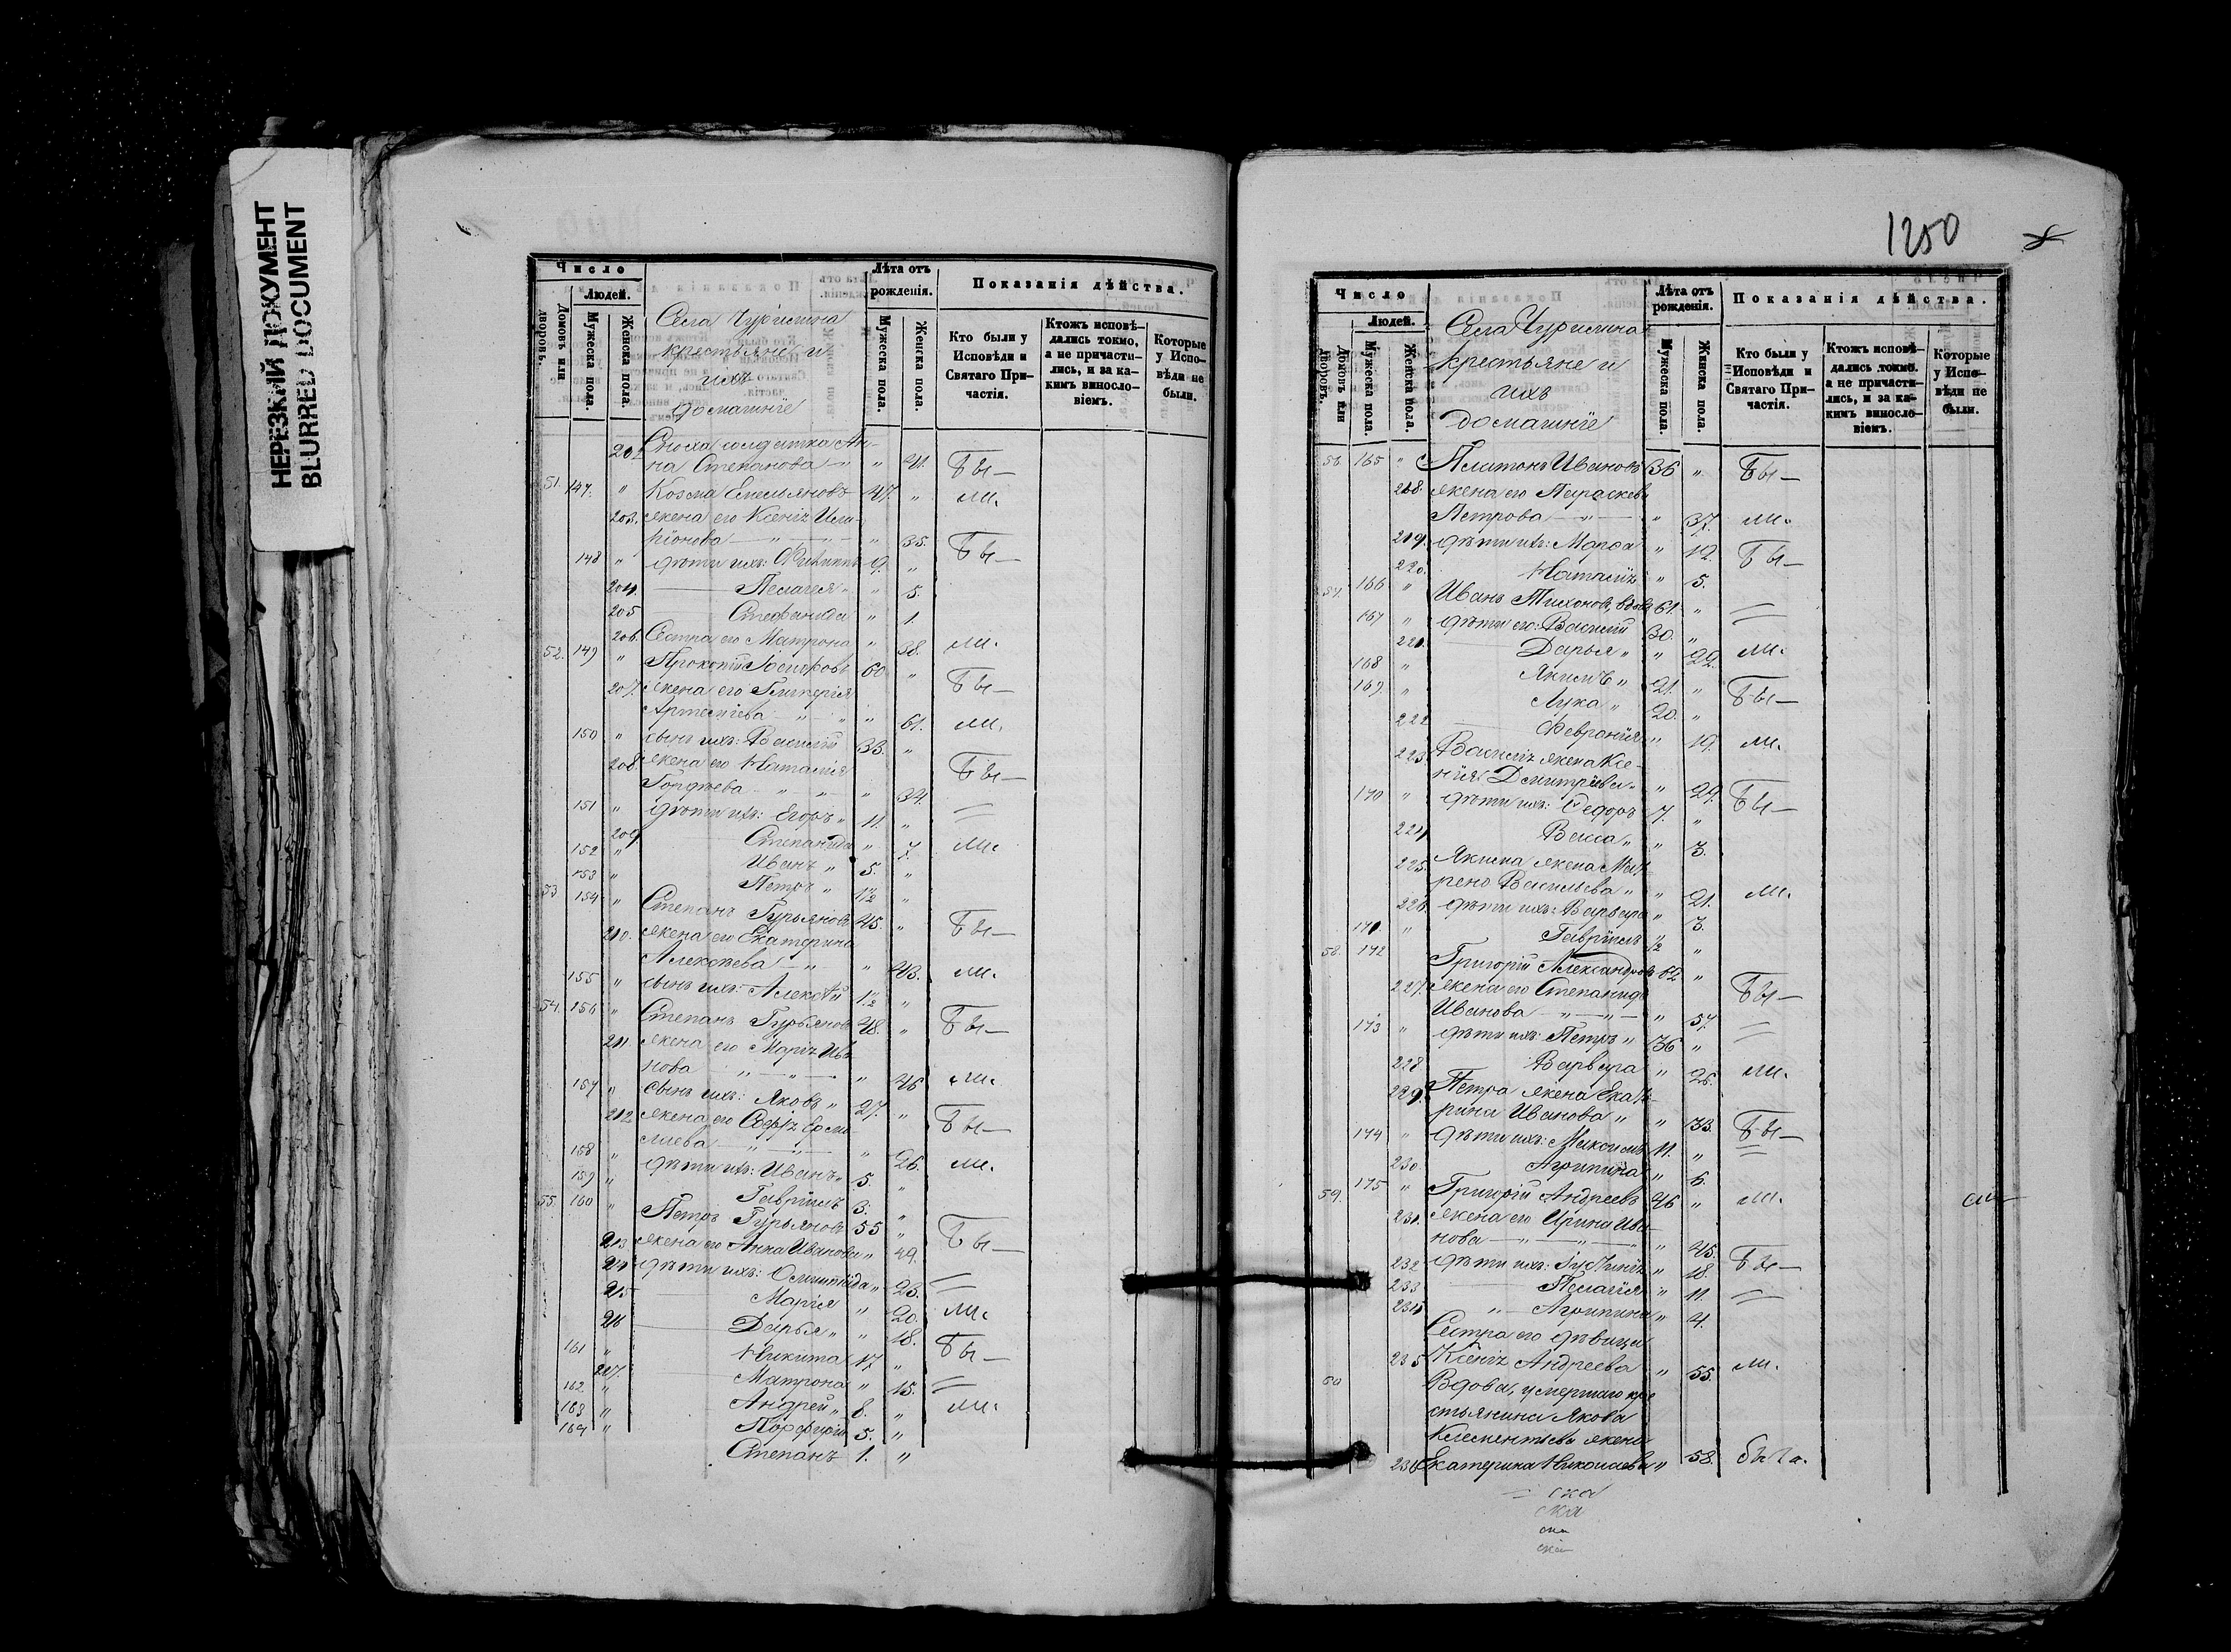 НЕРЕЗКИЙ ДОКУМЕНТ
BLURRED DOCUMENT
Число
Людей.
Домовъ или дворовъ.
Мужеска пола.
Женска пола.
Села Чурилина
крестьяне и
ихъ
домашніе
Лѣта отъ рожденія.
Мужеска пола.
Женска пола.
Показанія дѣйства.
Кто были у Исповѣди и Святаго Причастія.
Ктожъ исповѣдались токмо, а не причастились, и за какимъ винословіемъ.
Которые у Исповѣди не были.
Сноха солдатка Ан-
на Степанова " 41. Бы-
51. 147. " Козма Емельяновъ 47. " ли.
203. жена его Ксенія
" 35. Бы-
148 " дѣти ихъ: Филиппъ 9. "
204. Пелагея " 5.
205 Стефанида " 1.
206. Сестра его Матрона " 38. ли.
52. 149 " Прокопій 60 " Бы-
207. жена его Гликерія
" 61. ли.
150 " сынъ ихъ: Василій 33. "
208 жена его Наталія Бы-
Гордѣева " 34.
151 " дѣти ихъ: Егоръ 11. " =
209 Степанида " 7. ли.
152 " Иванъ " 5. "
153 " Петръ " 1/2 "
53 154 " Степанъ Гурьяновъ 45. " Бы-
210. жена его Екатерина
Алексѣева " 43. ли.
155 " сынъ ихъ: Алексѣй 1/2 "
54. 156 " Степанъ Гурьяновъ 48. " Бы-
211. жена его Марія Ива-
нова " 46 ли.
157 " сынъ ихъ: Яковъ " 27. "
212 жена его Софія Бы-
" 26. ли.
158 " дѣти ихъ: Иванъ 5. "
159 " Гавріилъ 3. "
55. 160 " Петръ Гурьяновъ 55 " Бы-
213 жена его Анна Иванова " 49.
214 дѣти ихъ: " 23. =
215 Марія " 20. ли.
216 Дарья " " 18. Бы-
161 " Никита 17. "
217. Матрона " 15. =
162 " Андрей " 8. " ли.
163 " Порфирій 5. "
164 " Степанъ 1. "
1250
Число
Людей.
Домовъ или дворовъ.
Мужеска пола.
Женска пола.
Села Чурилина
крестьяне и
ихъ
домашніе
Лѣта отъ рожденія.
Мужеска пола.
Женска пола.
Показанія дѣйства.
Кто были у Исповѣди и Святаго Причастія.
Ктожъ исповѣдались токмо, а не причастились, и за какимъ винословіемъ.
Которые у Исповѣди не были.
56. 165 " Платонъ Ивановъ 36 " Бы-
218. жена его Параскева
Петрова " 37. ли.
219. дѣти ихъ: Марфа " 12. Бы-
220. Наталія " 5.
57. 166 " Иванъ Тихоновъ, вдовъ 61. " =
167 " дѣти его: Василій 30. "
221. Дарья " " 22. ли.
168 " Якимъ " 21. "
169. " Лука " 20. " Бы-
222 Февронія " 19. ли.
223. Василія жена Ксе-
нія Дмитріева " 29. Бы-
170 " дѣти ихъ: Федоръ 7. "
224 Васса " " 3.
225. Якима жена Мат-
рена Васильева " " 21. ли.
226. дѣти ихъ: Варвара " 3.
171 " Гавріилъ 1/2 "
58. 172 Григорій Александровъ 62 "
227. жена его Степанида Бы-
Иванова " 57.
173 " дѣти ихъ: Петръ " 36 " =
228 Варвара " 26. ли.
229. Петра жена Екате-
рина Иванова " " 33. Бы-
174 " дѣти ихъ: Максимъ 11. " =
230 Агрипина " 6.
59. 175 " Григорій Андреевъ 46 " ли.
231. жена его Ирина Ива-
нова " 45.
232 дѣти ихъ: " 18. Бы-
233 Пелагія " 11. =
234 Агрипина " 4.
Сестра его дѣвица
235 Ксенія Андреева " 55. ли.
60 Вдова, умершаго кре-
стьянина Якова
Клементьева жена
236 Екатерина Николаева " 58. была.
ска
ска
ска
ска